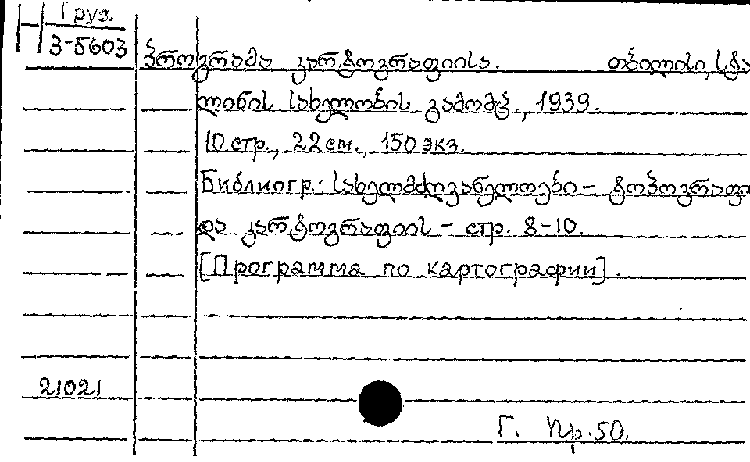 Груз.
3-5603
პროგრამა კარტოგრაფიისა. თბილისი, სტა
ლინის სახელობის გამომც, 1939.
10 стр., 22 см., 150 экз.
Библиогр: სახელმძღვანელოები - ტოპოგრაფი
და კარტოგრაფიის - стр. 8-10.
[Программа по картографии].
21021
Г. Пр. 50.